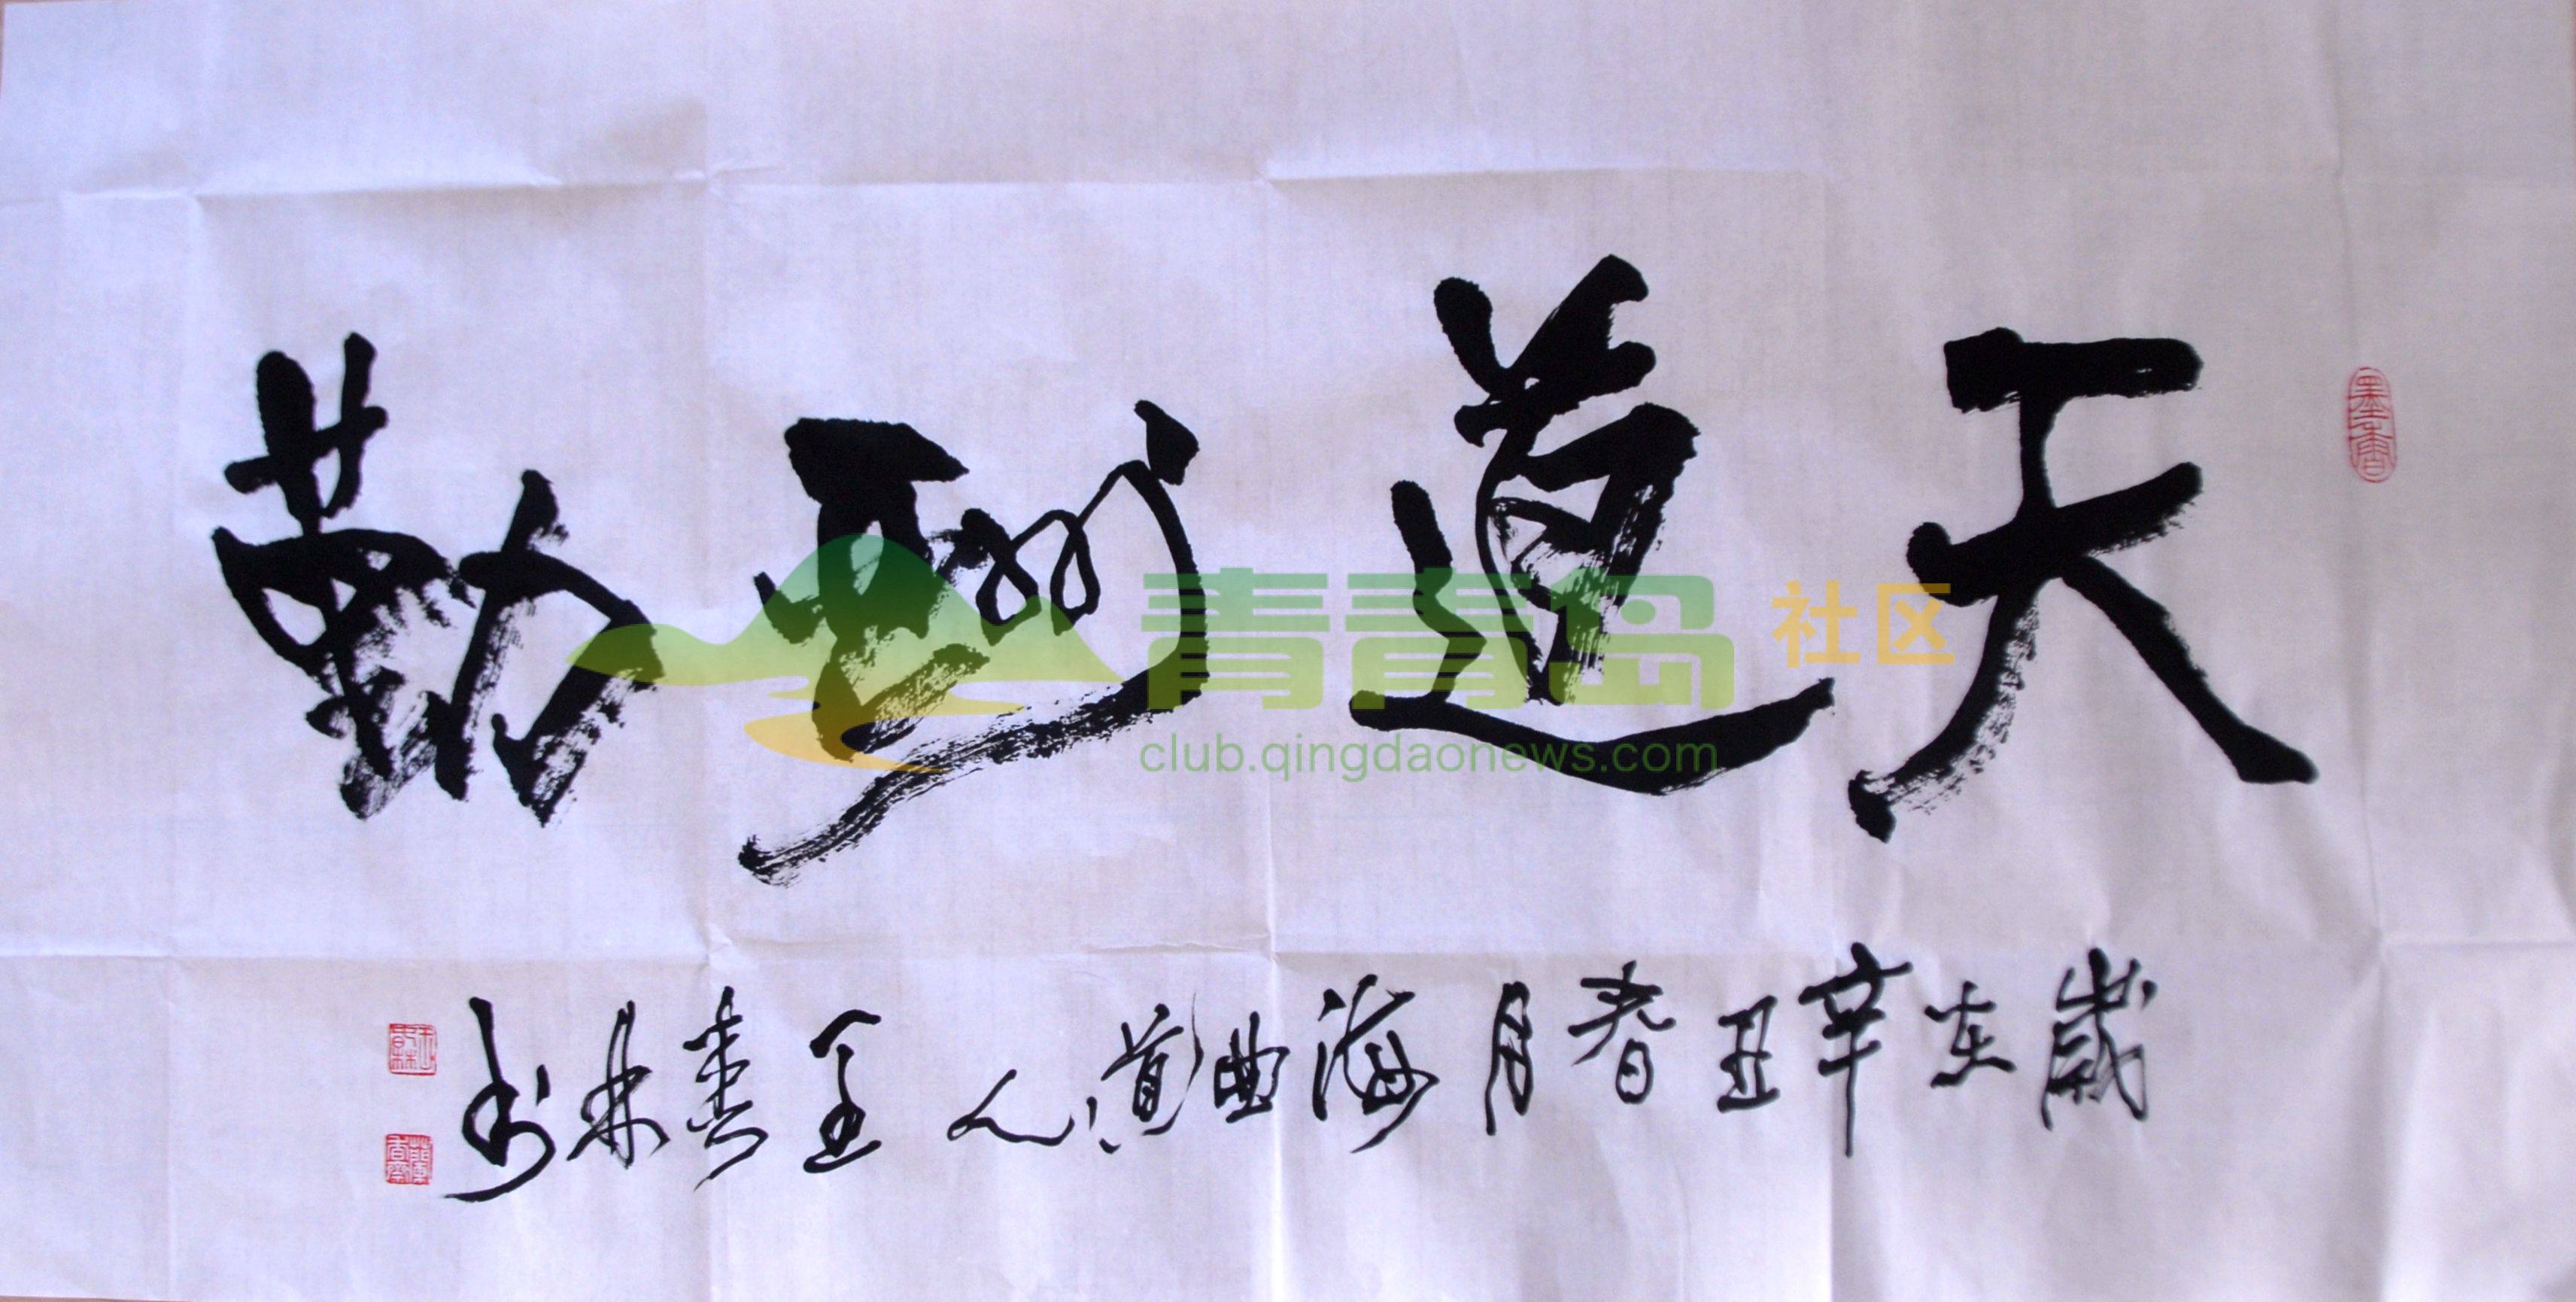 天道酬勤
歲在辛丑春月海曲道人林书
墨香
青青岛社区
club.qingdaonews.com